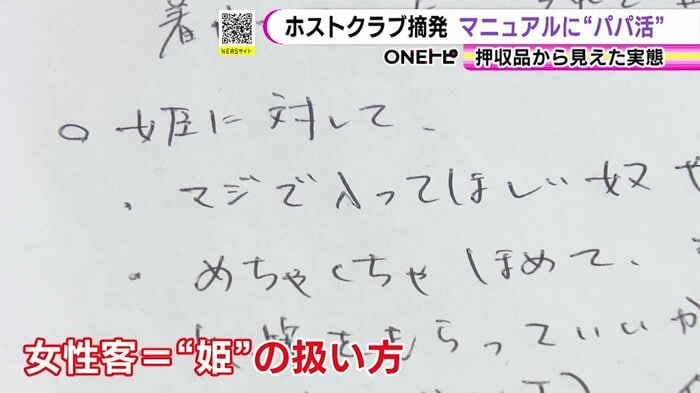 NEWSサイト
ホストクラブ摘発 マニュアルに“パパ活”
ONEトピ 押収品から見えた実態
着
○ 姫に対して、
・マジで入ってほしい奴や
・めちゃくちゃほめて、
をもらっていいか
女性客=“姫”の扱い方